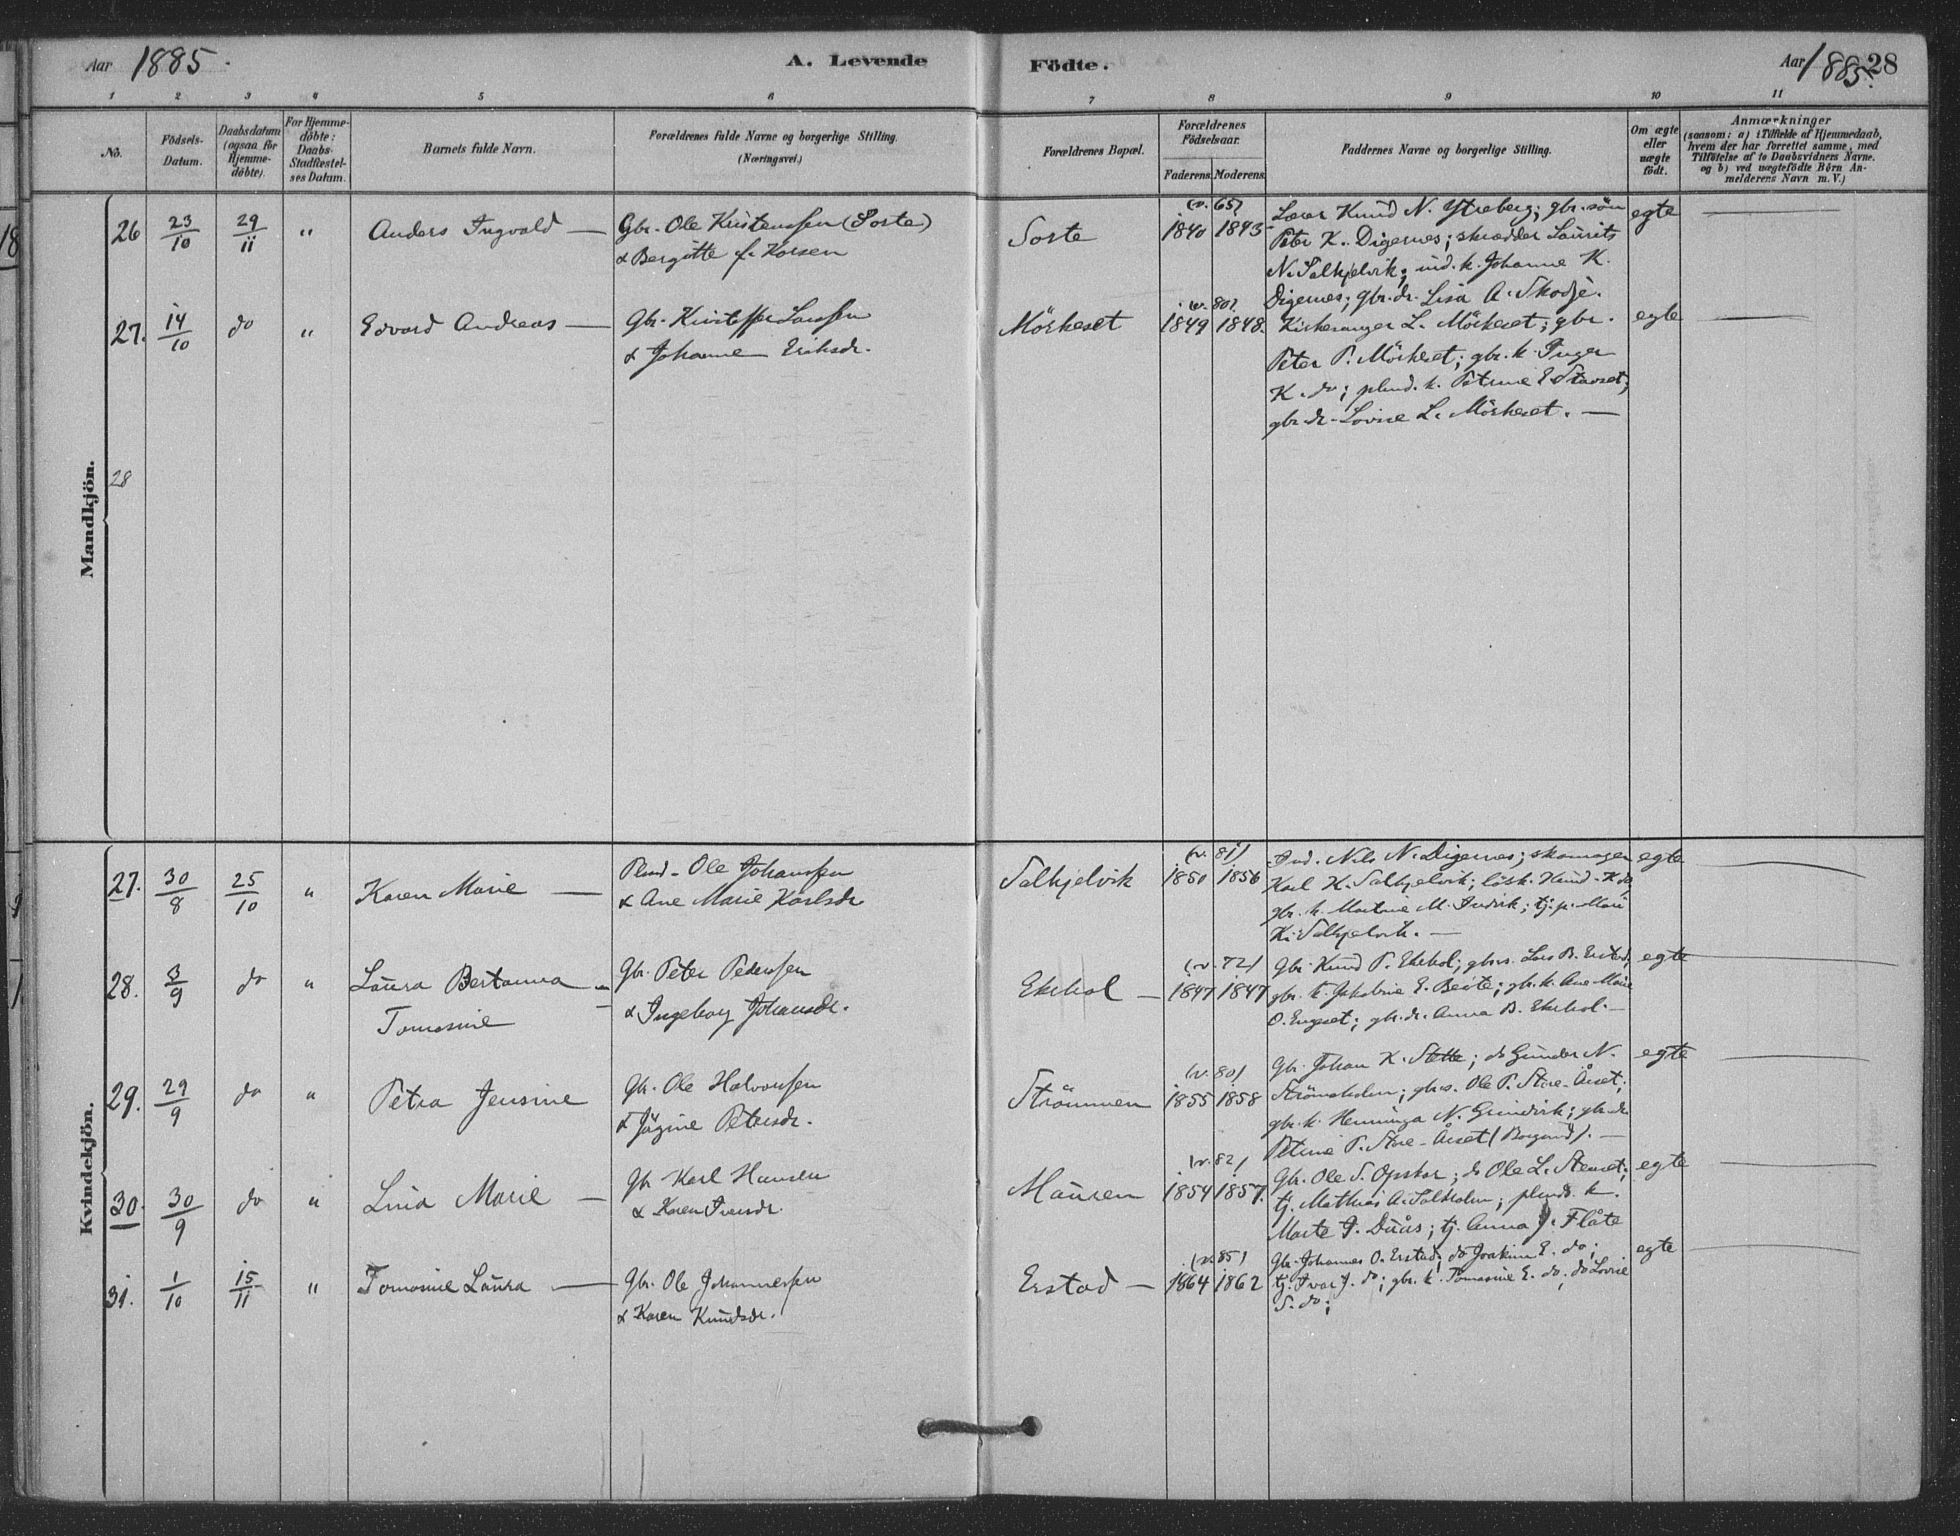 Aar 1885.
A. Levende
Födte.
Aar 1885. 28
1 2 3 4 5 6 7 8 9 10 11
No.
Födsels-
Datum.
Daabsdatum
(ogsaa for
Hjemme-
döbte).
For Hjemme-
döbte:
Daabs-
Stadfæstel-
ses Datum.
Barnets fulde Navn.
Forældrenes fulde Navne og borgerlige Stilling.
(Næringsvei.)
Forældrenes Bopæl.
Forældrenes
Födselsaar.
Faderens. Moderens.
Faddernes Navne og borgerlige Stilling.
Om ægte
eller
uægte
födt.
Anmærkninger
(saasom: a) i Tilfælde af Hjemmedaab,
hvem der har forrettet samme, med
Tilföielse af to Daabsvidners Navne.
og b) ved uægtefödte Börn An-
melderens Navn m. V.)
Mandkjön.
26 23/10 29/11 " Anders Ingvald —
Gbr. Ole Kristenssen (Sorte)
& Bergitte f. Korsen
Sorte
(v. 65)
1840 1843
Lærer Knud N. Ytreberg; gbr. sön
Peter K. Digernes; skrædder Laurits
N. Solkjelvik; ind. k. Johanne K.
Digernes; gbr. dr. Lisa A. Skodje.
egte
27. 14/10 do " Edvard Andreas —
Gbr. Kristoffer Larssen
& Johanne Eriksdr.
Mörkeset
(v. 80)
1849 1848.
Kirkesanger L. Mörkeset; gbr.
Peter P. Mörkeset; gbr. k. Inger
K. do; plmd. k. Petrine E Stavset;
gbr. dr. Lovise L. Mörkeset. —
egte
28
Kvindekjön.
27. 30/8 25/10 " Karen Marie —
Plmd. Ole Johanssen
& Ane Marie Karlsdr
Solkjelvik
(v. 81)
1850 1856
Ind. Nils N. Digernes; skomager
Karl K. Solkjelvik; lösk. Knud K do
gbr. k. Martine M.
K. Solkjelvik. —
egte
28. 3/9 do " Laura Bertanna
Tomasine
Gbr. Peter Pederssen
& Ingeborg Johansdr.
Ekrhol —
(v. 72)
1847 1847
Gbr. Knud P. Ekrhol; gbr. s. Lars B. Erstad;
gbr. k. Jakobine E. Beite; gbr. k. Ane Marie
O. Engeset; gbr. dr. Anna B. Ekrhol. —
egte
29. 29/9 do " Petra Jensine
Gbr. Ole Halvorssen
& Jögine Petersdr.
Strömmen
(v. 80)
1855 1858
Gbr. Johan K. Stette; do Gunder N.
Strömsholm; gbr. s. Ole P. Store-Årset;
gbr. k. Henninga N. Grindvik; gbr. dr
Petrine P. Store-Årset (Borgund). —
egte
30. 30/9 do " Lina Marie —
Gbr Karl Hansen
& Karen Iversdr.
Mauren
(v. 82)
1854 1857.
Gbr. Ole S. Opskar; do Ole L. Stenset;
tj. Mathias A. Solholm; plmds. k.
Marte I. Duås; tj. Anna J. Flåte
egte
31. 1/10 15/11 " Tomasine Laura —
Gbr. Ole Johannessen
& Karen Knudsdr.
Erstad —
(v. 85)
1864 1862
Gbr. Johannes O. Erstad; do Joakim E. do;
tj. Ivar J. do; gbr. k. Tomasine E. do; do Lovise
S. do;
egte